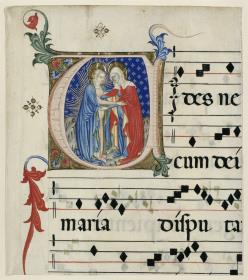 ides ne
cum dei
maria dispu ta